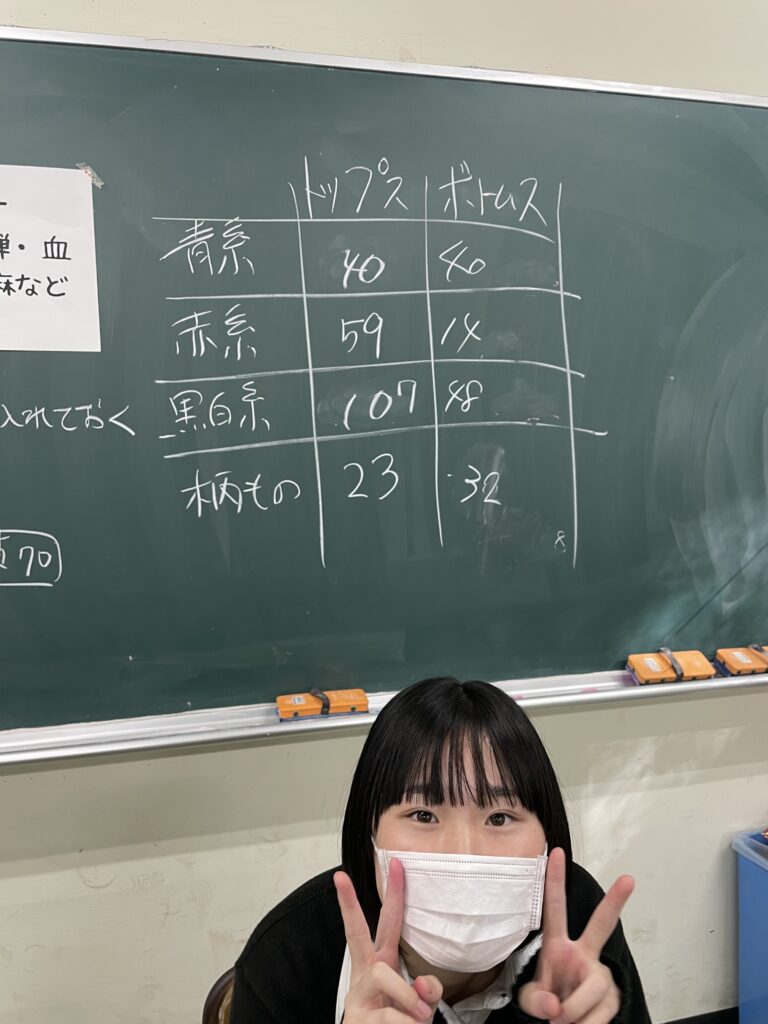 ー
弾・血
麻など
入れておく
70
トップス ボトムス
青系 40 40
赤系 59 14
黒白系 107 48
柄もの 23 32
8